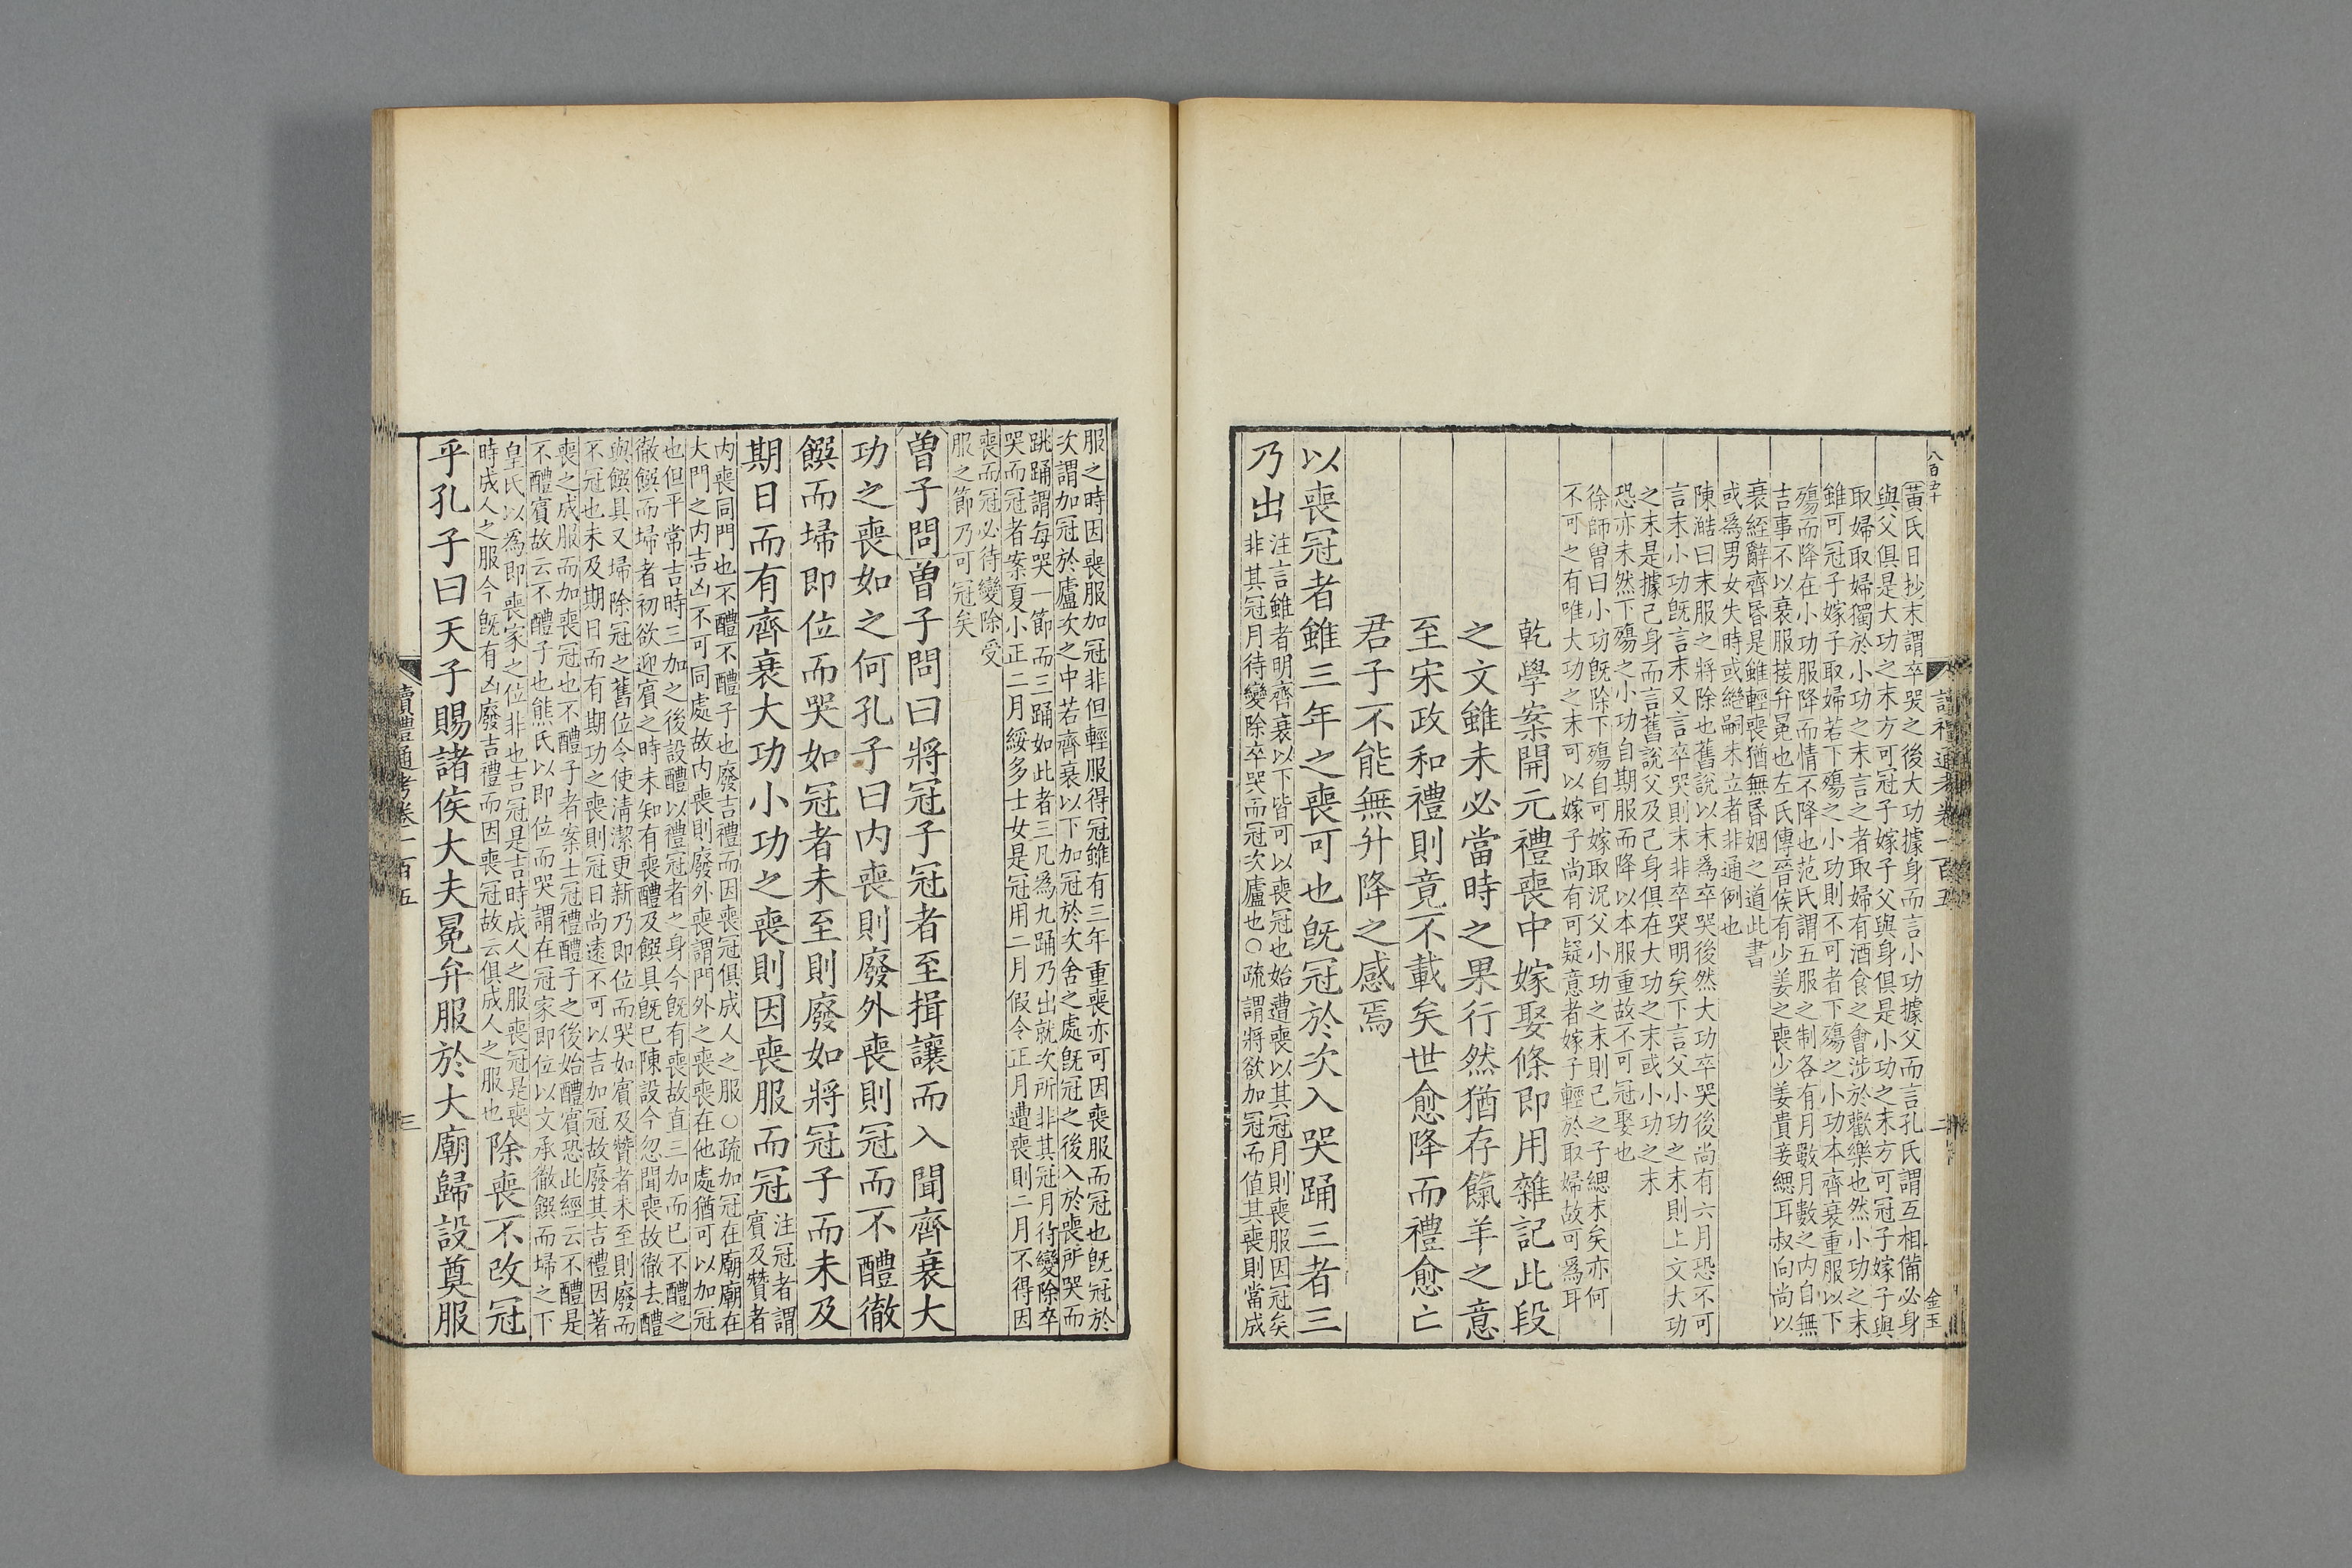 八百五十
讀禮通考卷一百五
二
金玉
黃氏日抄末謂卒哭之後大功據身而言小功據父而言孔氏謂互相備必身
與父俱是大功之末方可冠子嫁子父與身俱是小功之末方可冠子嫁子與
取婦取婦獨於小功之末言之者取婦有酒食之會涉於歡樂也然小功之末
雖可冠子嫁子取婦若下殤之小功則不可者下殤之小功本齊衰重服以下
殤而降在小功服降而情不降也范氏謂五服之制各有月數月數之內自無
吉事不以衰服接弁冕也左氏傳晉侯有少姜之喪少姜貴妾緦耳叔向尚以
衰絰辭齊昏是雖輕喪猶無昏姻之道此書
或為男女失時或繼嗣未立者非通例也
陳澔曰末服之將除也舊說以末為卒哭後然大功卒哭後尚有六月恐不可
言末小功既言末又言卒哭則末非卒哭明矣下言父小功之末則上文大功
之末是據己身而言舊說父及己身俱在大功之末或小功之末
恐亦未然下殤之小功自期服而降以本服重故不可冠娶也
徐師曾曰小功既除下殤自可嫁取況父小功之末則己之子緦末矣亦何
不可之有唯大功之末可以嫁子尚有可疑意者嫁子輕於取婦故可為耳
乾學案開元禮喪中嫁娶條即用雜記此段
之文雖未必當時之果行然猶存餼羊之意
至宋政和禮則竟不載矣世愈降而禮愈亡
君子不能無升降之感焉
以喪冠者雖三年之喪可也既冠於次入哭踊三者三
乃出
注言雖者明齊衰以下皆可以喪冠也始遭喪以其冠月則喪服因冠矣
非其冠月待變除卒哭而冠次廬也○疏謂將欲加冠而值其喪則當成
服之時因喪服加冠非但輕服得冠雖有三年重喪亦可因喪服而冠也既冠於
次謂加冠於廬次之中若齊衰以下加冠於次舍之處既冠之後入於喪所哭而
跳踊謂每哭一節而三踊如此者三凡為九踊乃出就次所非其冠月待變除卒
哭而冠者案夏小正二月綏多士女是冠用二月假令正月遭喪則二月不得因
喪而冠必待變除受
服之節乃可冠矣
曾子問曾子問曰將冠子冠者至揖讓而入聞齊衰大
功之喪如之何孔子曰內喪則廢外喪則冠而不醴徹
饌而埽即位而哭如冠者未至則廢如將冠子而未及
期日而有齊衰大功小功之喪則因喪服而冠
注冠者謂
賓及贊者
內喪同門也不醴不醴子也廢吉禮而因喪冠俱成人之服○疏加冠在廟廟在
大門之內吉凶不可同處故內喪則廢外喪謂門外之喪喪在他處猶可以加冠
也但平常吉時三加之後設醴以禮冠者之身今既有喪故直三加而已不醴之
徹饌而埽者初欲迎賓之時未知有喪醴及饌具既已陳設今忽聞喪故徹去醴
與饌具又埽除冠之舊位令使清潔更新乃即位而哭如賓及贊者未至則廢而
不冠也未及期日而有期功之喪則冠日尚遠不可以吉加冠故廢其吉禮因著
喪之成服而加喪冠也不醴子者案士冠禮醴子之後始醴賓恐此經云不醴是
不醴賓故云不醴子也熊氏以即位而哭謂在冠家即位以文承徹饌而埽之下
皇氏以為即喪家之位非也吉冠是吉時成人之服喪冠是喪
時成人之服今既有凶廢吉禮而因喪冠故云俱成人之服也
除喪不改冠
乎孔子曰天子賜諸侯大夫冕弁服於大廟歸設奠服
讀禮通考卷一百五
三